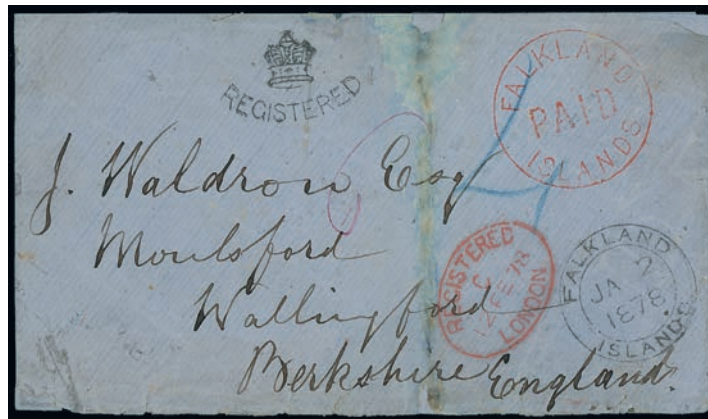 REGISTERED
FALKLAND
PAID
ISLANDS
J. Waldron Esq
Moulsford
Wallingford
Berkshire England.
REGISTERED
C
12 FE 78
LONDON
FALKLAND
JA 2
1878
ISLANDS